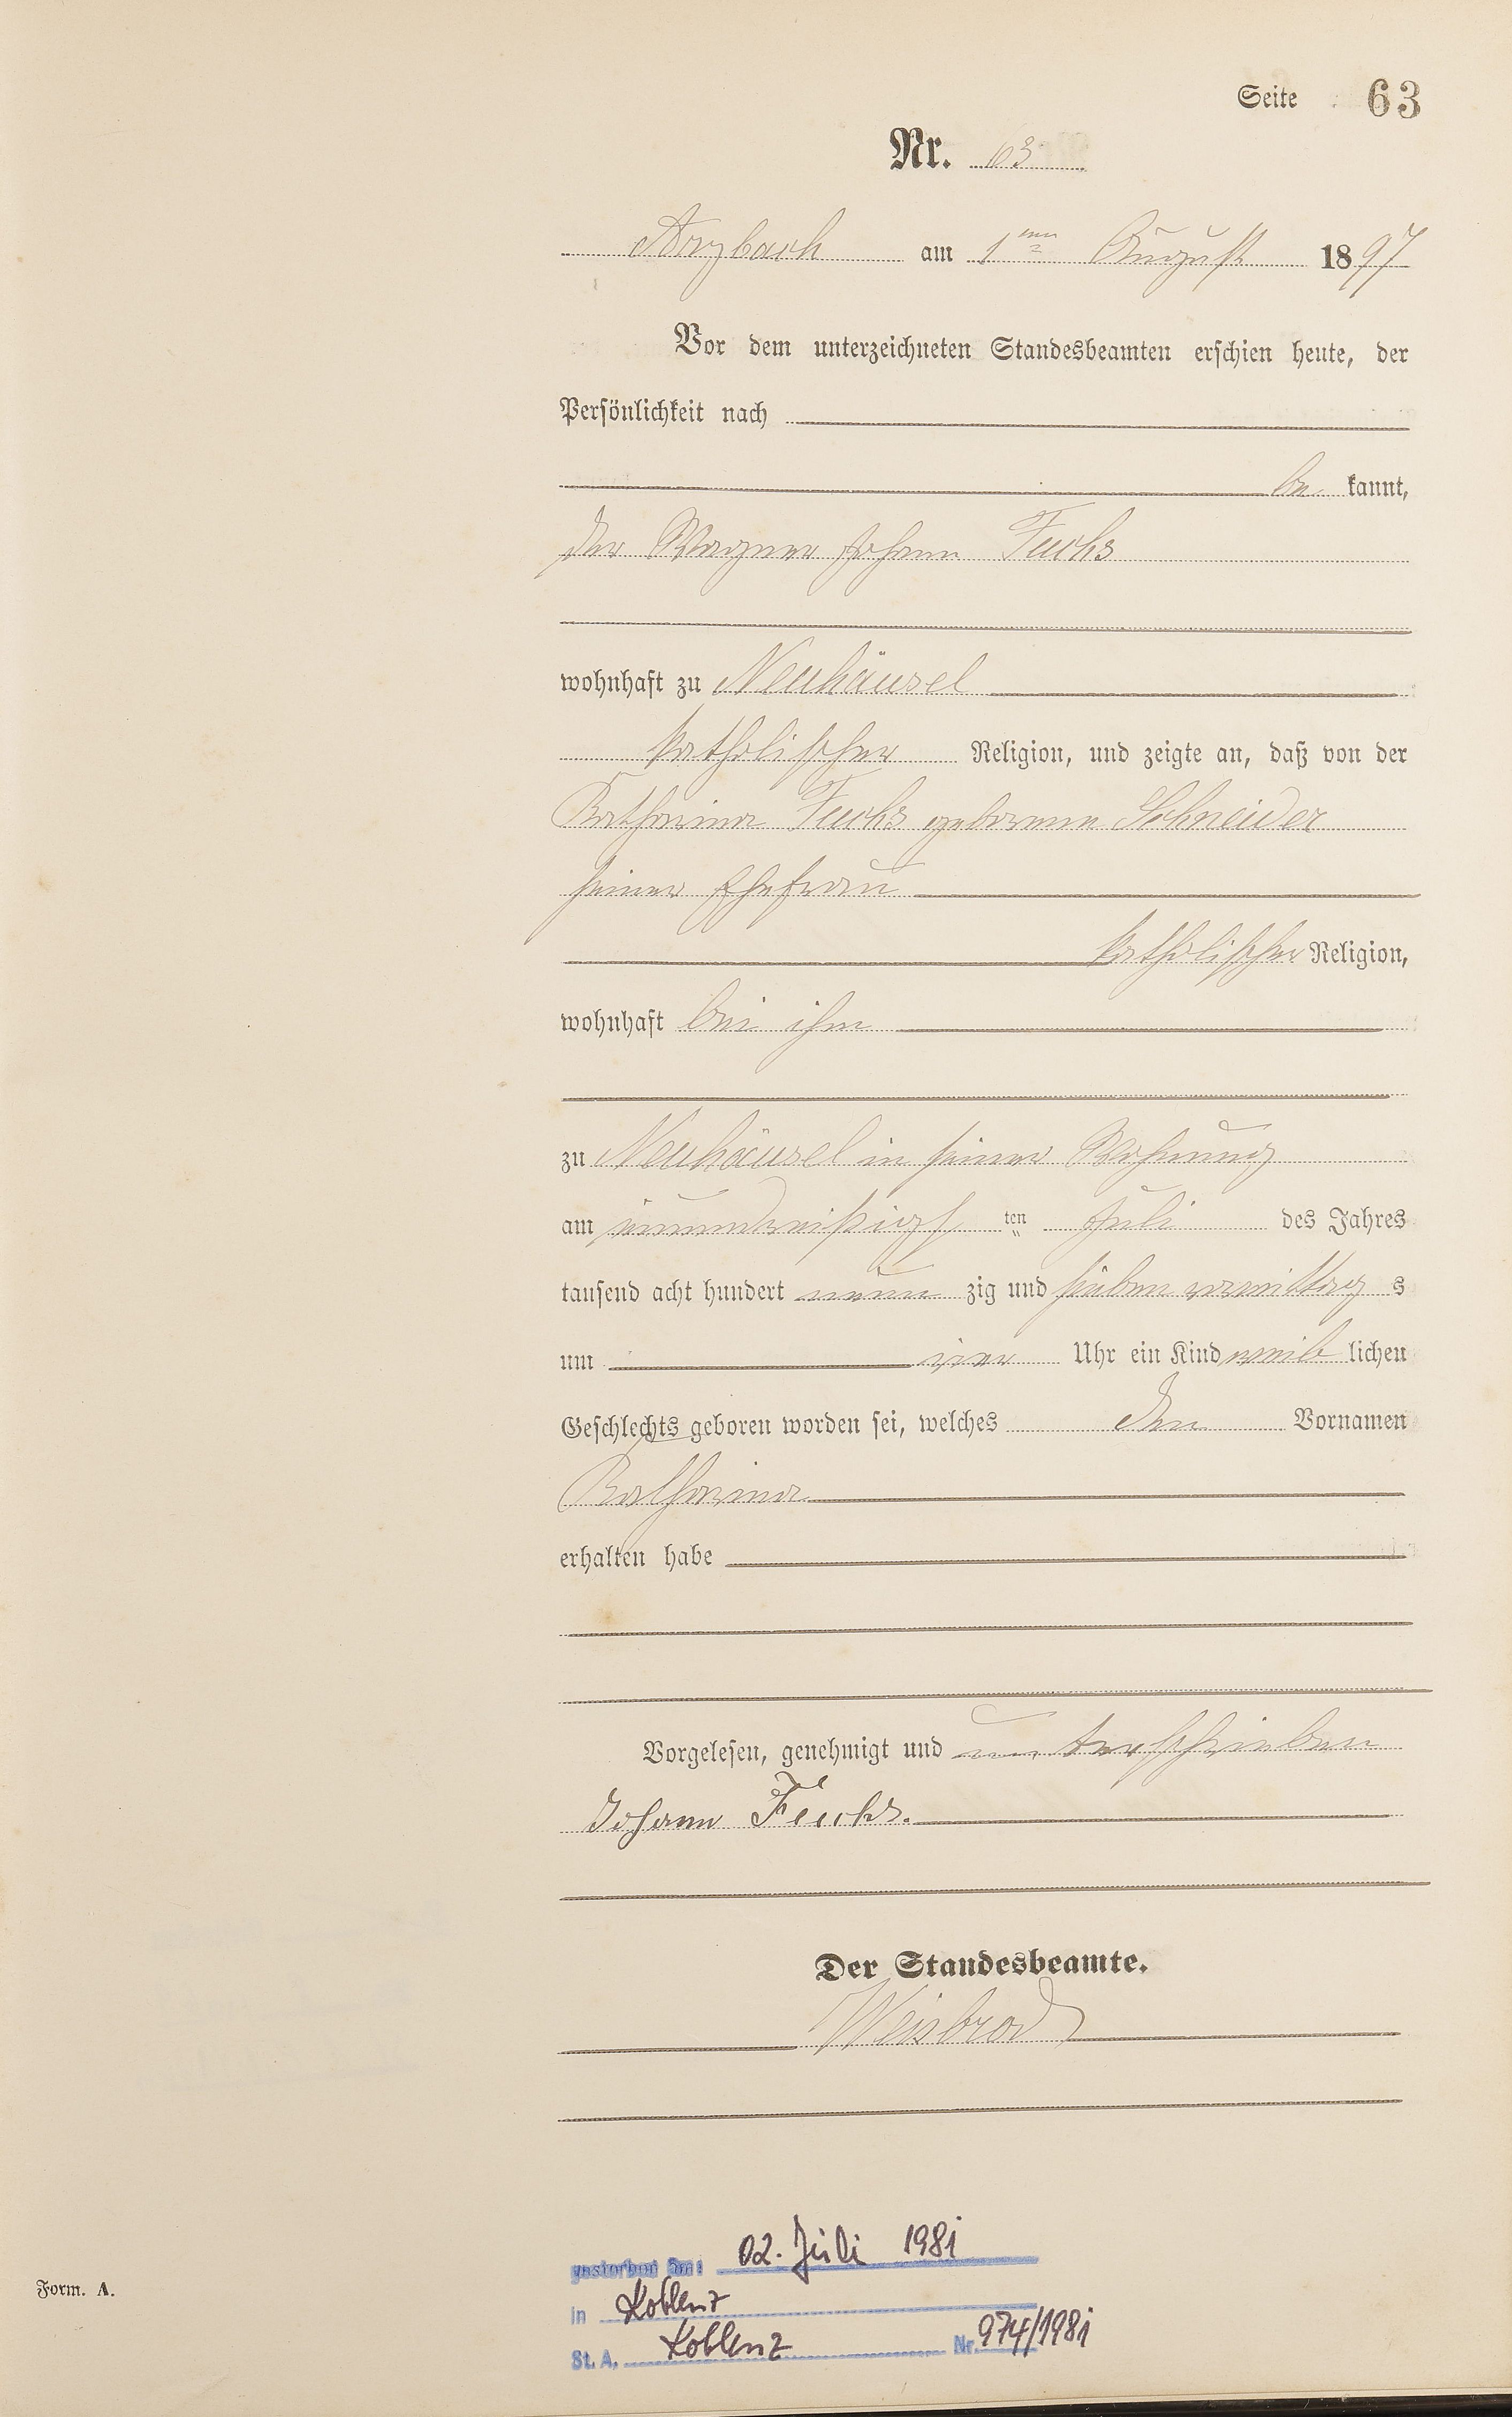 Seite 63
Nr. 63
Arzbach am 1ten August 1897
Vor dem unterzeichneten Standesbeamten erschien heute, der
Persönlichkeit nach
be kannt,
der Wagner Johann Fuchs
wohnhaft zu Neuhäusel
katholischer Religion, und zeigte an, daß von der
Katharina Fuchs geborenen Schneider
seiner Ehefrau
katholischer Religion,
wohnhaft bei ihm
zu Neuhäusel in seiner Wohnung
am einunddreißigs ten Juli des Jahres
tausend acht hundert neun zig und sieben vormittag s
um vier Uhr ein Kind weib lichen
Geschlechts geboren worden sei, welches den Vornamen
Katharina
erhalten habe
Vorgelesen, genehmigt und unterschrieben
Johann Fuchs.
Der Standesbeamte.
Weisbrod
gestorben am: 02. Juli 1981
in Koblenz
St. A. Koblenz Nr. 974/1981
Form. A.